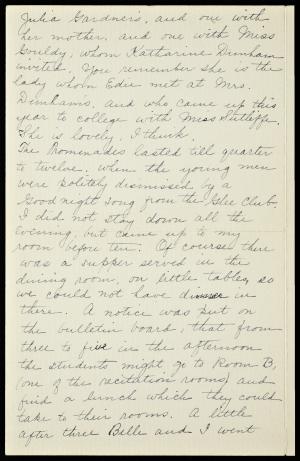 Julia Gardner's, and one with
her mother, and one with Miss
Gouldy, whom Katharine Dunham
invited. You remember she is the
lady whom Edie met at Mrs.
Dunhams, and who came up this
year to college with Miss Sutliffe.
She is lovely, I think.
The Promenades lasted till quarter
to twelve, when the young men
were politely dismissed by a
Good night song from the Glee Club.
I did not stay down all the
evening, but came up to my
room before ten. Of course there
was a supper served in the
dining room, on little tables, so
we could not have dinner in
there. A notice was put on
the bulletin board, that from
three to five in the afternoon
the students might go to Room B,
(one of the recitation rooms) and
find a lunch which they could
take to their rooms. A little
after three Belle and I went